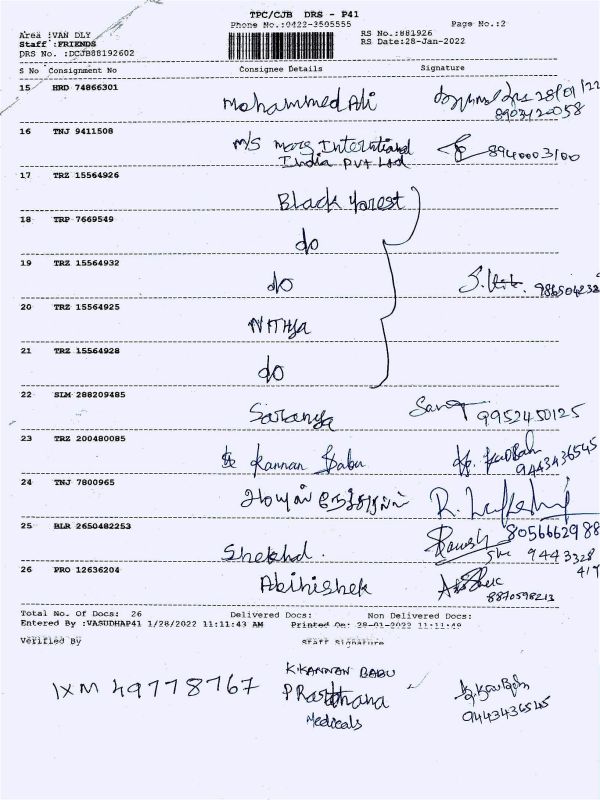 TPC/CJB DRS - P41
Phone No.:0422-3505555
Page No.:2
Area :VAN DLY
Staff:FRIENDS
DRS No. :DCJB88192602
RS No.:881926
RS Date:28-Jan-2022
S No Consignment No Consignee Details Signature
15 HRD 74866301
Mohammed Ali 28/01/22
8903120058
16 TNJ 9411508
M/S Marg Interntional
India Pvt Ltd 8940003100
17 TRZ 15564926
Black forest
18 TRP 7669549
do
19 TRZ 15564932
do
20 TRZ 15564925
NITHYA
21 TRZ 15564928
do
22 SLM 288209485
Saranya 9952450125
23 TRZ 200480085
Kannan Babu
9443436545
24 TNJ 7800965
25 BLR 2650482253
8056662988
Shekhal. 9443328
417
26 PRO 12636204
Abihishek
8870598213
Total No. Of Docs: 26 Delivered Docs: Non Delivered Docs:
Entered By :VASUDHAP41 1/28/2022 11:11:43 AM Printed On: 28-01-2022 11:11:49
Verified By Staff Signature
IXM 49778767
K.KANNAN BABU
PRarthana
Medicals
9443436545